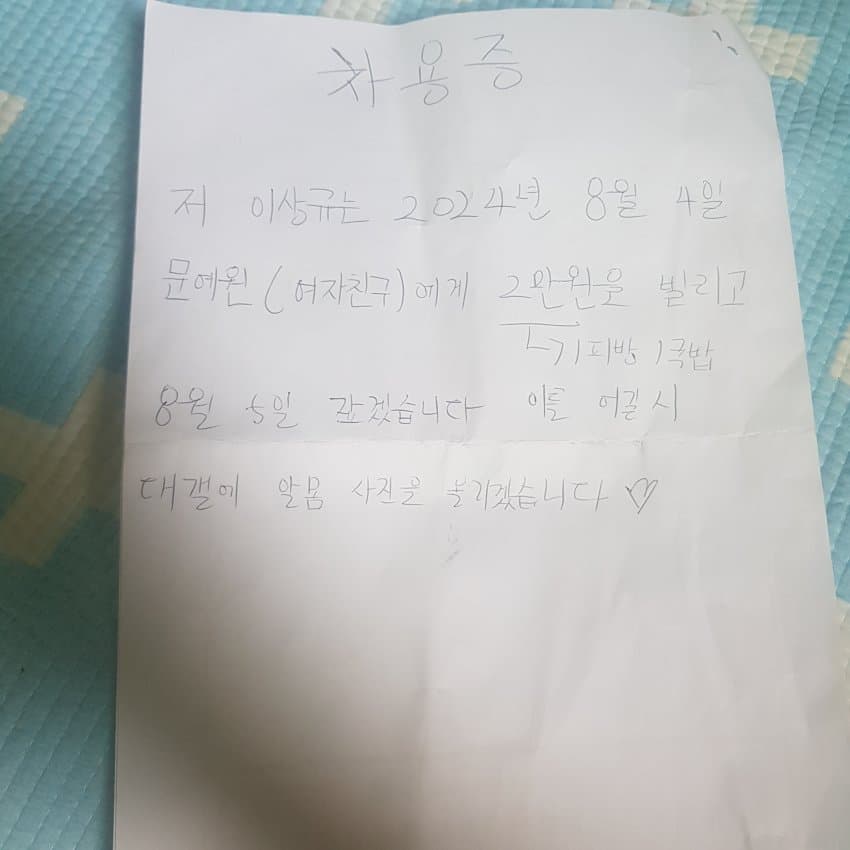 차용증
저 이상규는 2024년 8월 4일
문예원 (여자친구)에게 2만원을 빌리고
ㄴ기피방 1국밥
8월 5일 갚겠습니다 이를 어길시
대갤에 알몸 사진을 올리겠습니다 ♡